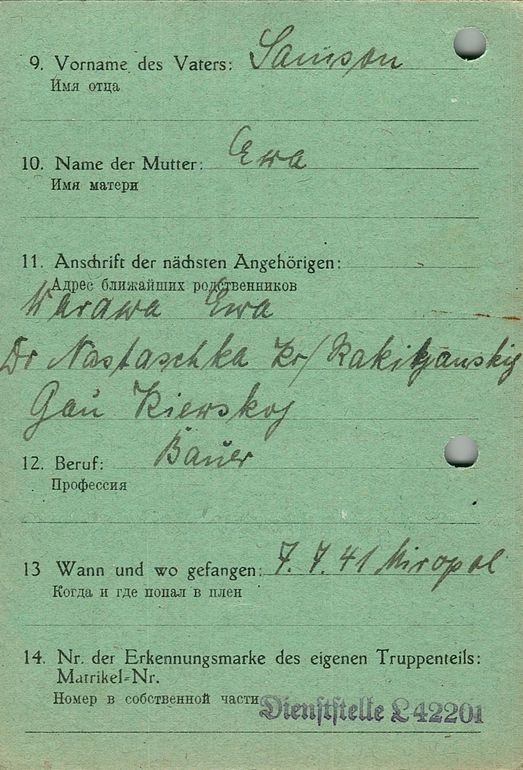 9. Vorname des Vaters: Samson
Имя отца
10. Name der Mutter: Ewa
Имя матери
11. Anschrift der nächsten Angehörigen:
Адрес ближайших родственников
Warawa Ewa
Dr Nastaschka Kr/Rakitjanskij
Gau Kiewskoj
12. Beruf: Bauer
Профессия
13 Wann und wo gefangen: 7. 7. 41 Miropol
Когда и где попал в плен
14. Nr. der Erkennungsmarke des eigenen Truppenteils:
Matrikel-Nr.
Номер в собственной части
Dienststelle L 42201